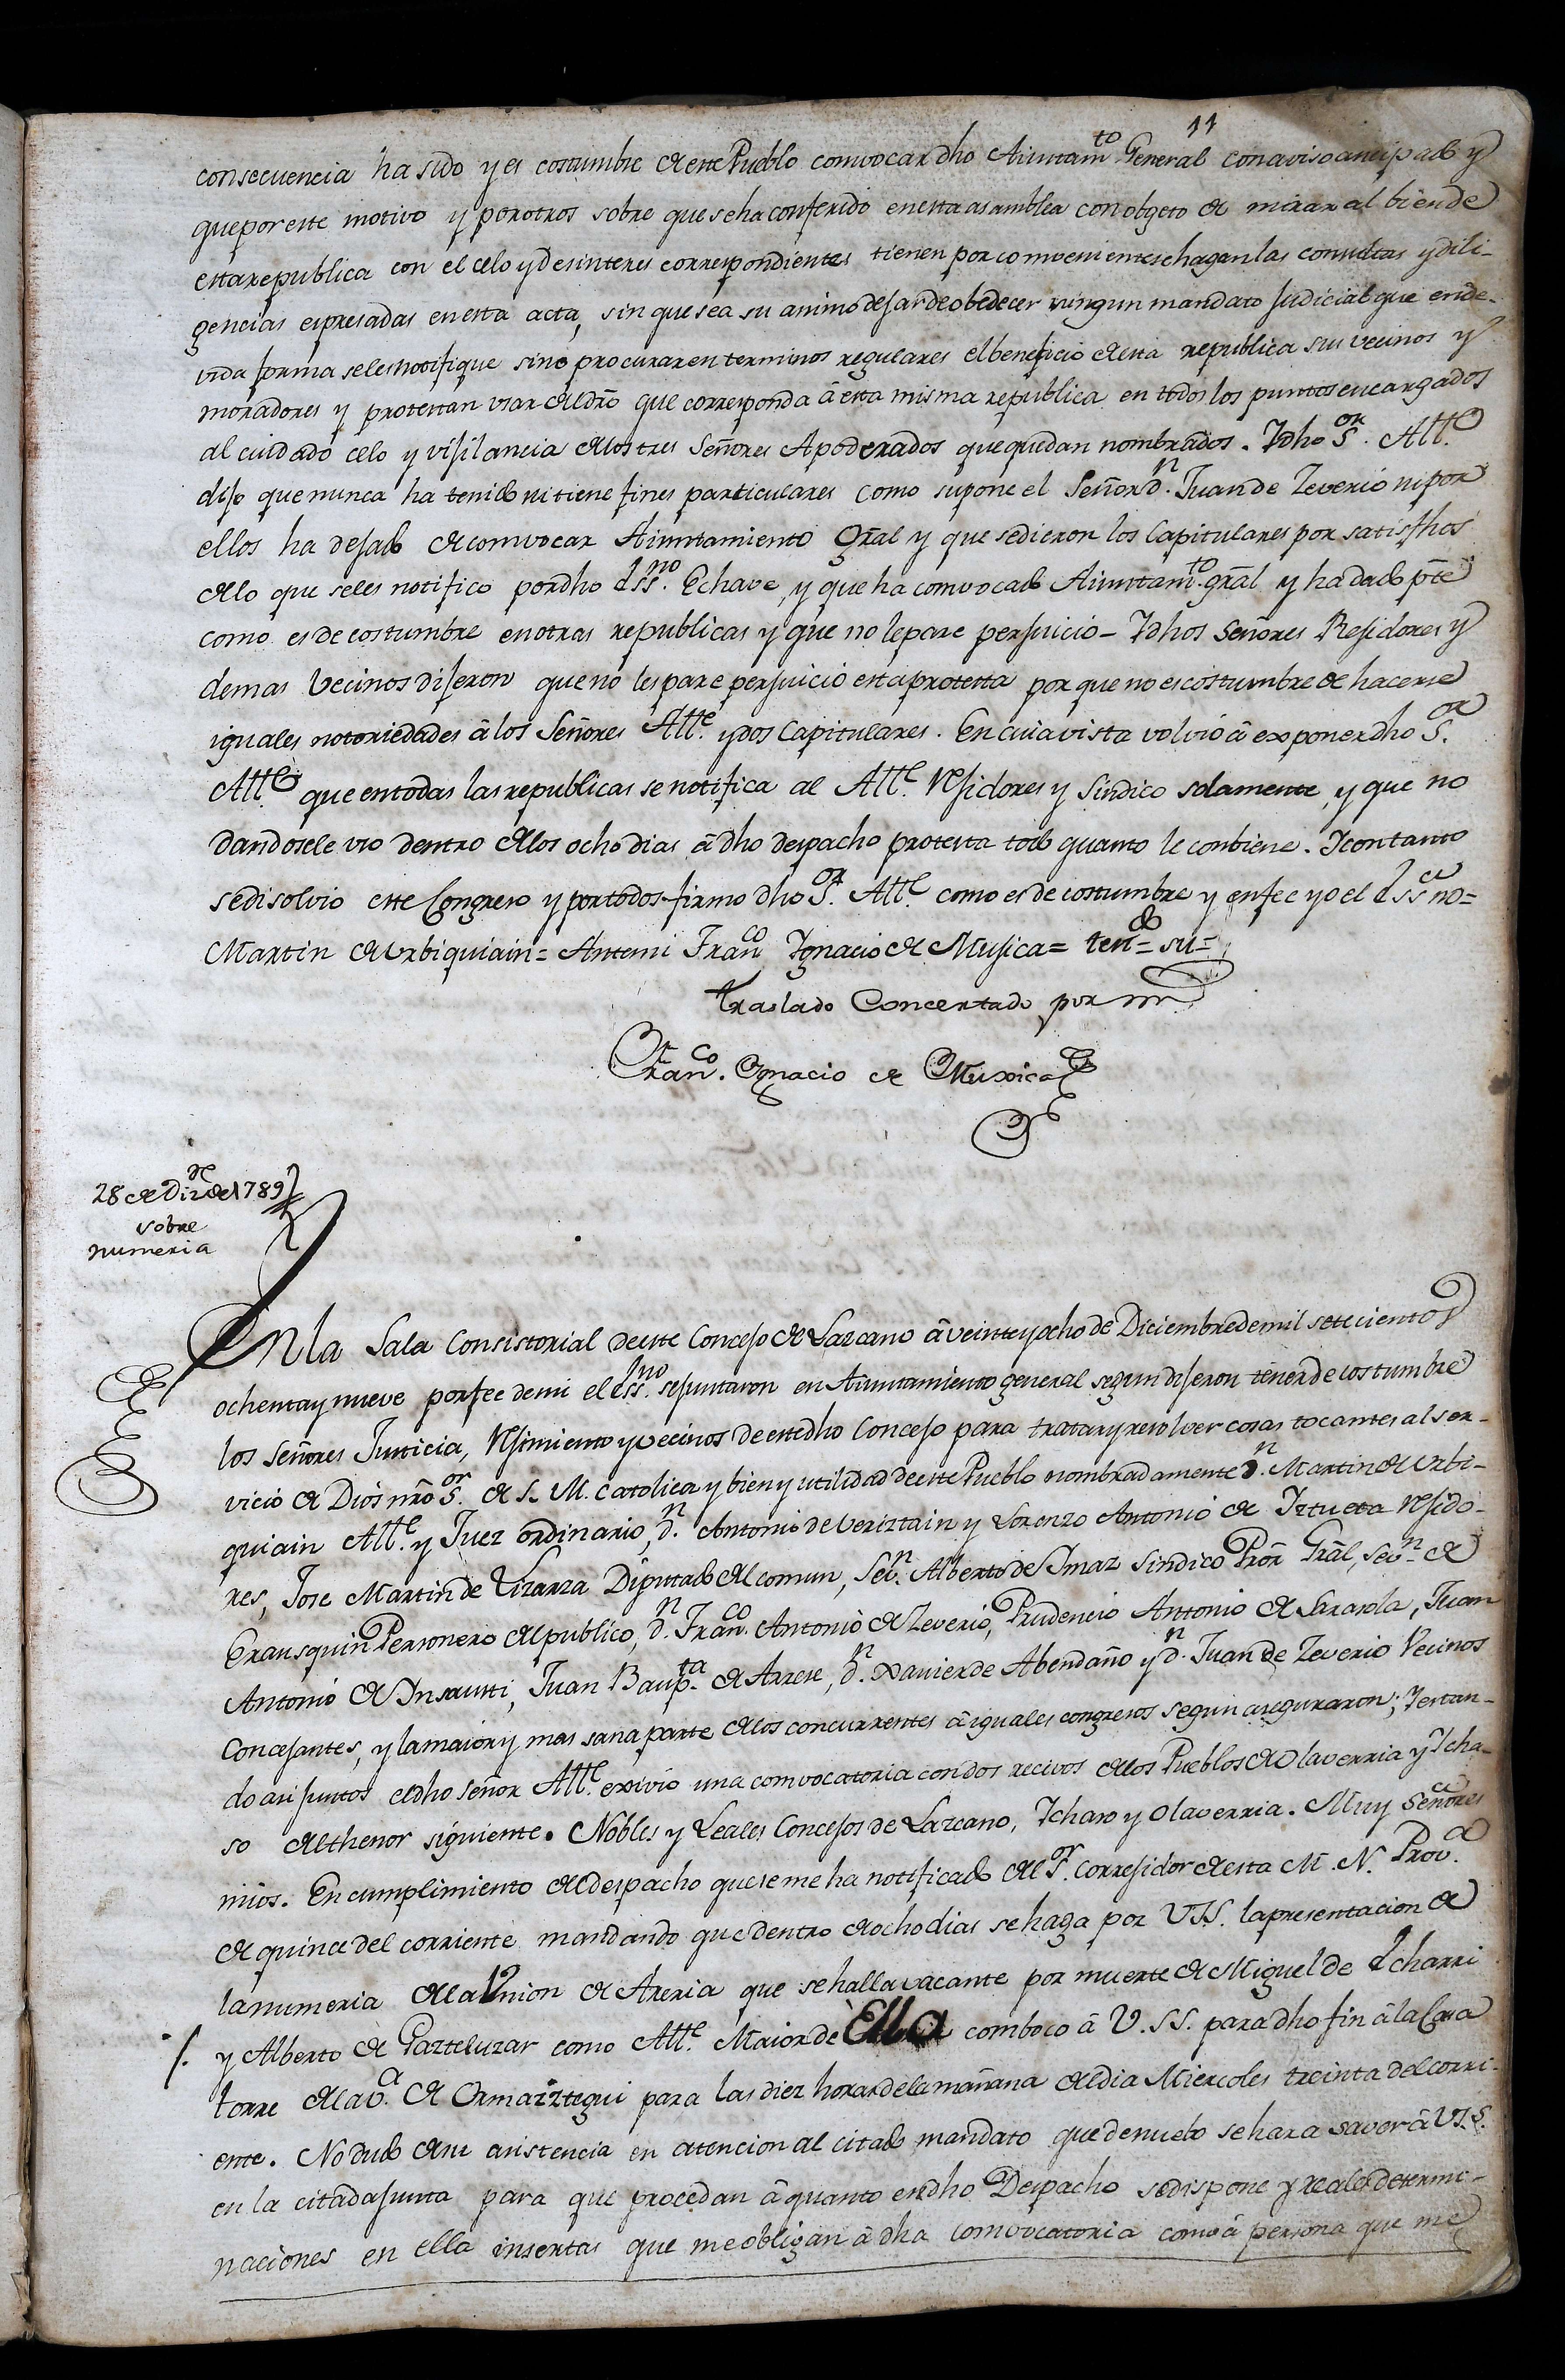 11
consecuencia ha sido y es costumbre de este Pueblo convocar dho Aiuntam.to General con aviso antipado y
que por este motivo y por otros sobre que se ha conferido en esta asamblea con objeto de mirar al bien de
esta republica con el celo y desinteres correspondientes tienen por conveniente se hagan las consultas y dili-
gencias espresadas en esta acta, sin que sea su animo dejar de obedecer ningun mandato Judicial que en de-
vida forma se les notifique sino procurar en terminos regulares el beneficio de esta republica sus vecinos y
moradores y protestan usar del dro que corresponda â esta misma republica en todos los puntos encargados
al cuidado celo y vijilancia de los tres Señores Apoderados que quedan nombrados. Y dho S.or All.e
dijo que nunca ha tenido ni tiene fines particulares como supone el Señor d.n Juan de Zeverio ni por
ellos ha dejado de convocar Aiuntamiento Gral y que se dieron los Capitulares por satisfhos
de lo que se les notifico por dho Ess.no Echave, y que ha convocado Aiuntam.to gral y ha dado pte
como es de costumbre en otras republicas y que no le pare perjuicio - Y dhos Señores Rejidores y
demas Vecinos dijeron que no les pare perjuicio esta protesta por que no es costumbre de hacerse
iguales notoriedades â los Señores Alle. y dos Capitulares. En cuia vista volvió â exponer dho S.or
Alle. que en todas las republicas se notifica al Alle. Rejidores y Sindico solamente, y que no
dandosele uso dentro de los ocho dias â dho despacho protesta todo quanto le conbiene. Y con tanto
se disolvio este Congreso y por todos firmo dho S.or Alle. como es de costumbre y en fee yo el Ess.no =
Martin de Urbiquiain = Ante mi Fran.co Ygnacio de Mujica = ten.do = su =
Traslado Concertado por mi
Fran.co Ygnacio de Muxica
28 de Diz.re de 1789
sobre
numeria
En la Sala Consistorial de este Concejo de Lazcano â veinte y ocho de Diciembre de mil setecientos
ochenta y nueve por fee de mi el Ess.no se juntaron en Aiuntamiento general segun dijeron tener de costumbre
los Señores Justicia, Rejimiento y vecinos de este dho Concejo para tratar y resolver cosas tocantes al ser-
vicio de Dios nro S.or de S. M. Catolica y bien y utilidad de este Pueblo nombradamente D.n Martin de Urbi-
quiain Alle. y Juez ordinario, d.n Antonio de Veriztain y Lorenzo Antonio de Yztueta Rejido-
res, Jose Martin de Lizarza Diputado del comun, Sev.n Alberto de Ymaz Sindico Pror Gral, Sev.n de
Erausquin Personero del publico, d.n Fran.co Antonio de Zeverio, Prudencio Antonio de Sarasola, Juan
Antonio de Ynsausti, Juan Baup.ta de Arrese, d.n Xavier de Abendaño y d.n Juan de Zeverio Vecinos
Concejantes, y la maior y mas sana parte de los concurrentes â iguales congresos segun aseguraron; Y estan-
do asi juntos el dho señor Alle. exivio una convocatoria con dos recivos de los Pueblos de Olaverria y Ycha-
so del thenor siguiente. Nobles y Leales Concejos de Lazcano, Ychaso y Olaverria. Muy Señores
mios. En cumplimiento del despacho que se me ha notificado del S.or Correjidor de esta M. N. Prov.a
de quince del corriente mandando que dentro de ocho dias se haga por VSS. la presentacion de
la numeria de la Union de Areria que se halla vacante por muerte de Miguel de Echarri
y Alberto de Gazteluzar como Alle. Maior de Ella comboco â V.SS. para dho fin â la Casa
torre de la v.a de Ormaiztegui para las diez horas de la mañana del dia Miercoles treinta del corri-
ente. No dudo de su asistencia en atencion al citado mandato que de nuebo se hara saver â V.SS.
en la citada junta para que procedan â quanto en dho Despacho se dispone y reales determi-
naciones en ella insertas que me obligan â dha convocatoria como â persona que me